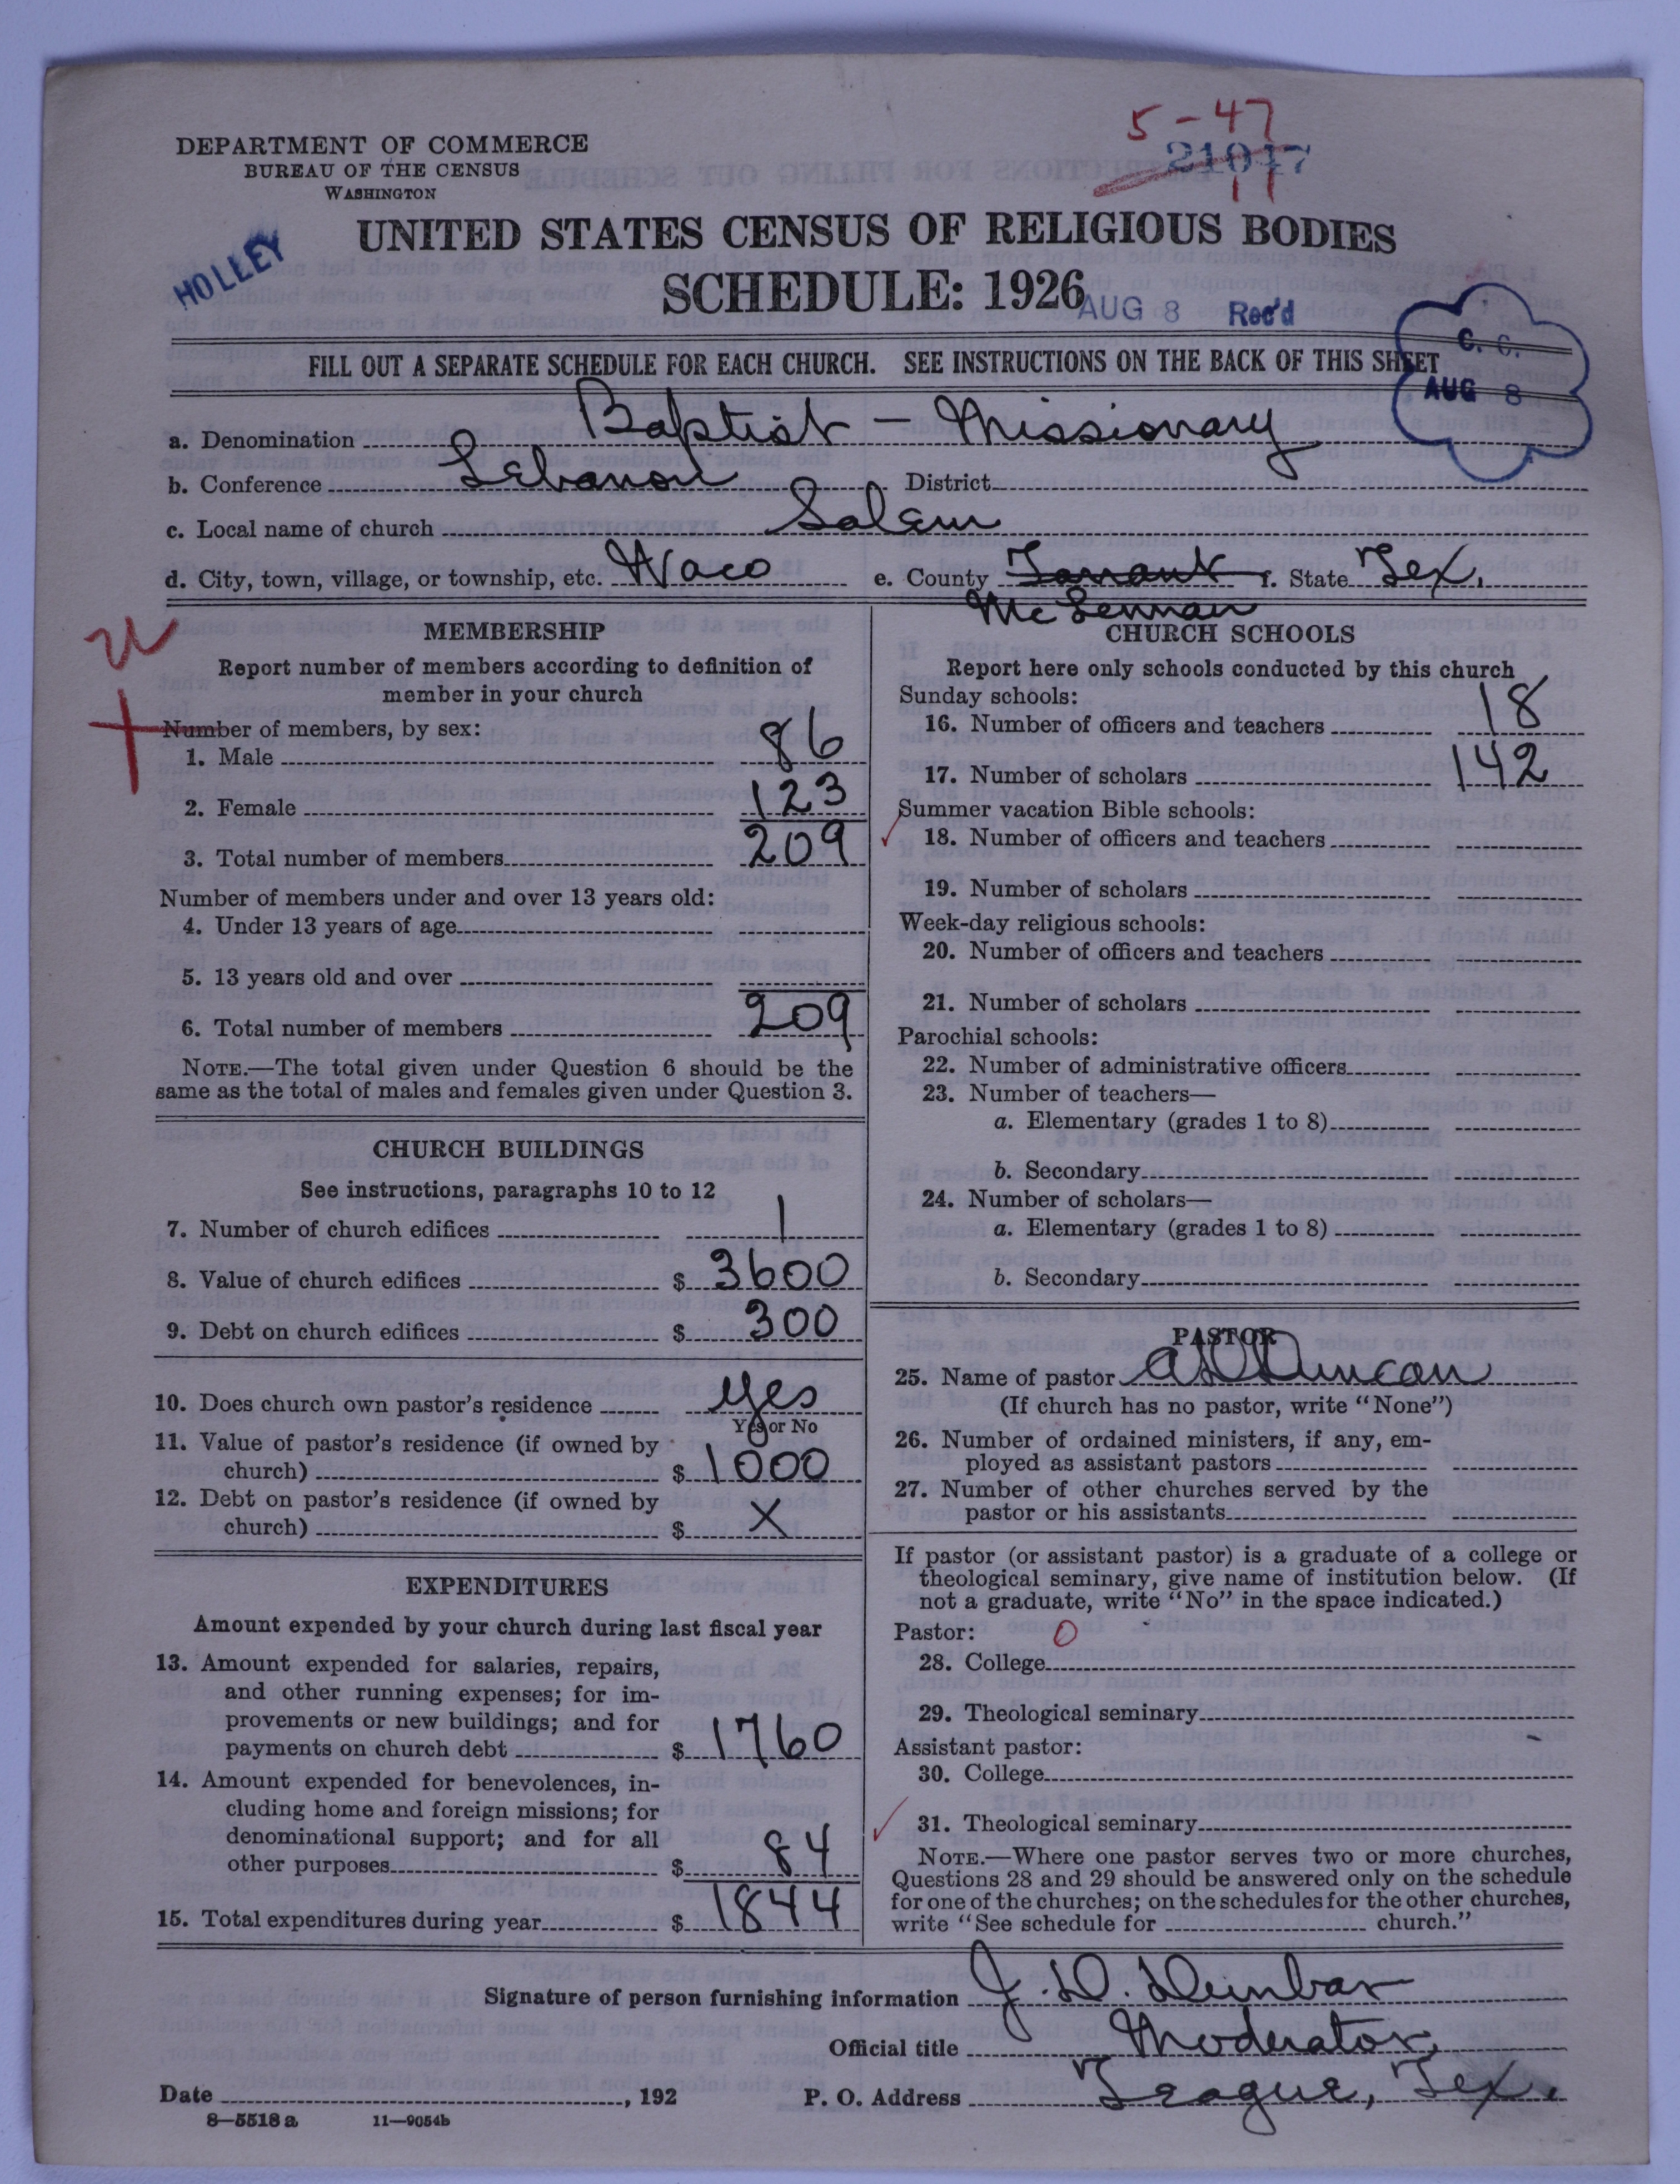 5-47
21047
11
DEPARTMENT OF COMMERCE
BUREAU OF THE CENSUS
WASHINGTON
HOLLEY
UNITED STATES CENSUS OF RELIGIOUS BODIES
SCHEDULE: 1926
AUG 8 Rec'd
C. C.
AUG 8
FILL OUT A SEPARATE SCHEDULE FOR EACH CHURCH. SEE INSTRUCTIONS ON THE BACK OF THIS SHEET
a. Denomination Baptist - Missionary
b. Conference Lebanon District
c. Local name of church Salem
d. City, town, village, or township, etc. Waco e. County Tarrant f. State Tex.
McLennan
MEMBERSHIP
Report number of members according to definition of
member in your church
Number of members, by sex:
1. Male 86
2. Female 123
3. Total number of members 209
Number of members under and over 13 years old:
4. Under 13 years of age
5. 13 years old and over
6. Total number of members 209
NOTE.—The total given under Question 6 should be the
same as the total of males and females given under Question 3.
CHURCH BUILDINGS
See instructions, paragraphs 10 to 12
7. Number of church edifices 1
8. Value of church edifices $ 3600
9. Debt on church edifices $ 300
10. Does church own pastor's residence yes
Yes or No
11. Value of pastor's residence (if owned by
church) $ 1000
12. Debt on pastor's residence (if owned by
church) $ X
EXPENDITURES
Amount expended by your church during last fiscal year
13. Amount expended for salaries, repairs,
and other running expenses; for im-
provements or new buildings; and for
payments on church debt $ 1760
14. Amount expended for benevolences, in-
cluding home and foreign missions; for
denominational support; and for all
other purposes $ 84
15. Total expenditures during year $ 1844
CHURCH SCHOOLS
Report here only schools conducted by this church
Sunday schools:
16. Number of officers and teachers 18
17. Number of scholars 142
Summer vacation Bible schools:
18. Number of officers and teachers
19. Number of scholars
Week-day religious schools:
20. Number of officers and teachers
21. Number of scholars
Parochial schools:
22. Number of administrative officers
23. Number of teachers—
a. Elementary (grades 1 to 8)
b. Secondary
24. Number of scholars—
a. Elementary (grades 1 to 8)
b. Secondary
PASTOR
25. Name of pastor Duncan
(If church has no pastor, write "None")
26. Number of ordained ministers, if any, em-
ployed as assistant pastors
27. Number of other churches served by the
pastor or his assistants
If pastor (or assistant pastor) is a graduate of a college or
theological seminary, give name of institution below. (If
not a graduate, write "No" in the space indicated.)
Pastor: 0
28. College
29. Theological seminary
Assistant pastor:
30. College
31. Theological seminary
NOTE.—Where one pastor serves two or more churches,
Questions 28 and 29 should be answered only on the schedule
for one of the churches; on the schedules for the other churches,
write "See schedule for church."
Signature of person furnishing information J. D. Dunbar
Official title Moderator
Date , 192 P. O. Address Teague, Tex.
8—5518 a 11—9054b